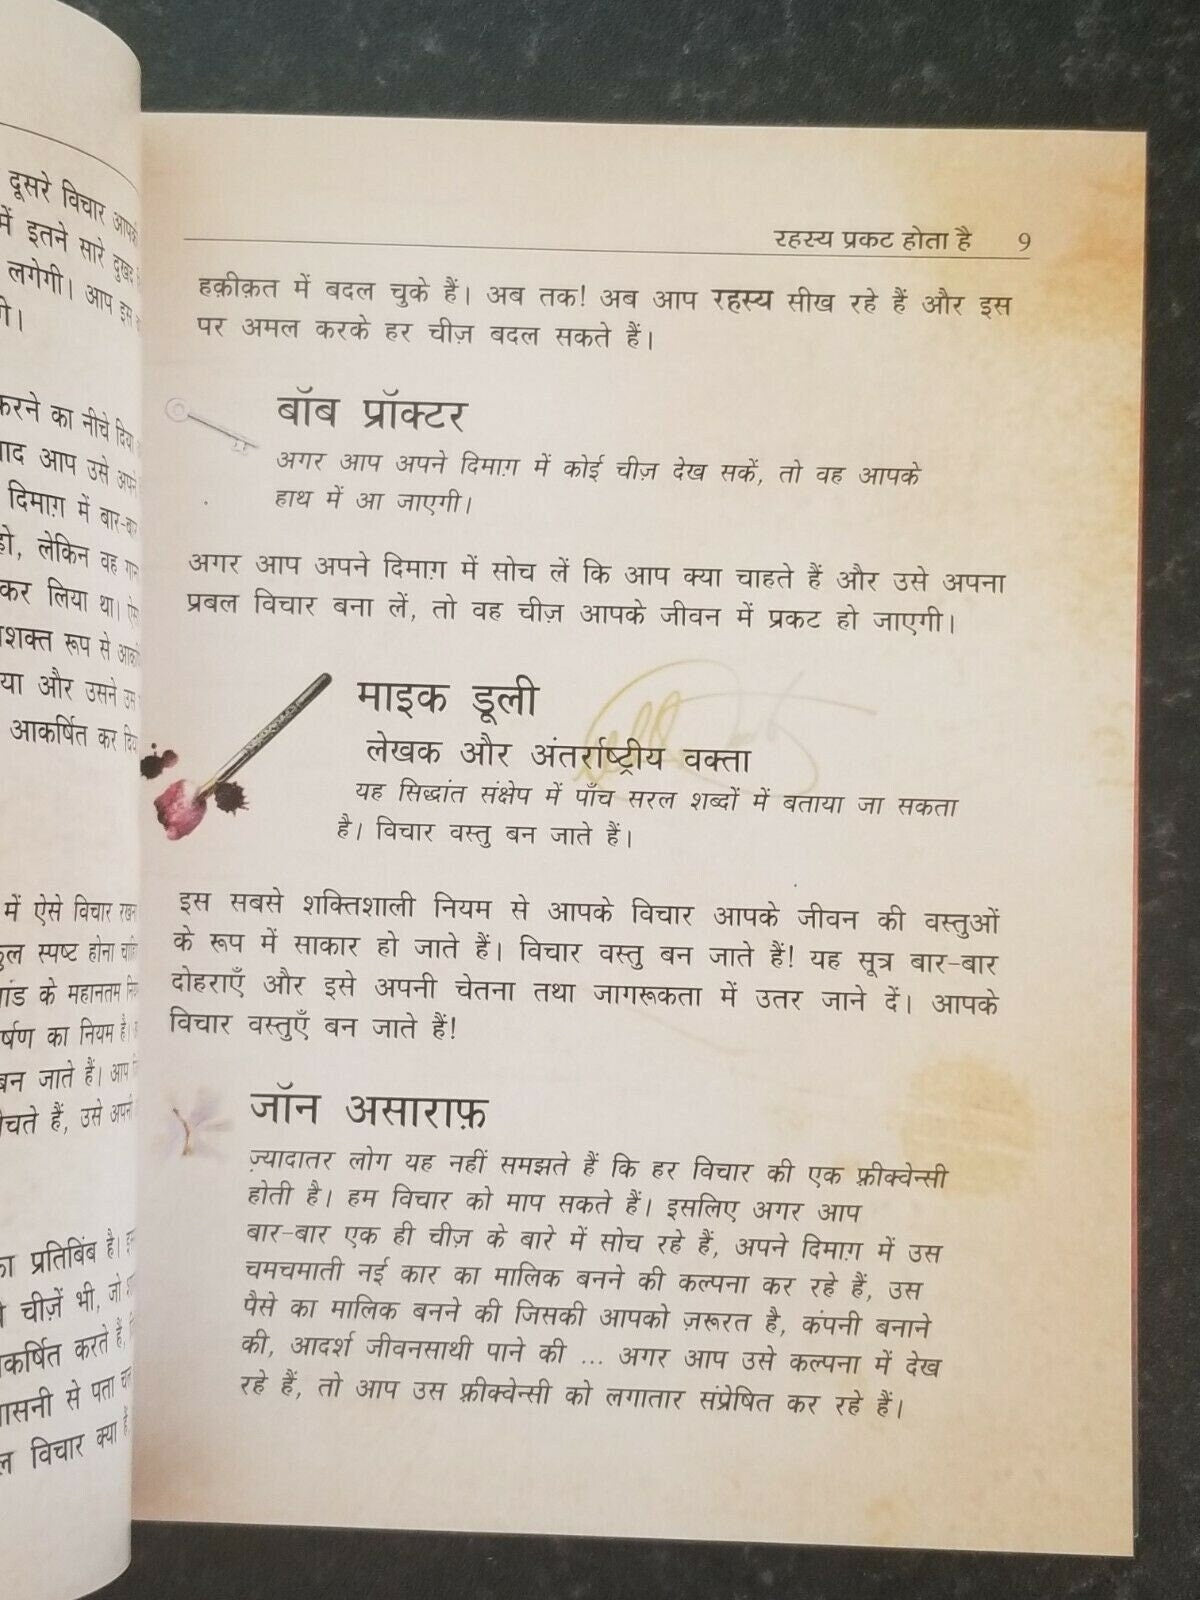 दूसरे विचार आपकी
में इतने सारे दुखद
लगेगी। आप इस
करने का नीचे दिया
बाद आप उसे अपने
दिमाग़ में बार-बार
हो, लेकिन वह गाना
कर लिया था।
रूप से
या और उसने उस
आकर्षित कर दिया
में ऐसे विचार रखना
स्पष्ट होना चाहिए
के महानतम
का नियम है।
बन जाते हैं। आप
हैं, उसे अपनी
का प्रतिबिंब है।
चीज़ें भी, जो
करते हैं,
से पता चल
विचार क्या हैं
रहस्य प्रकट होता है 9
हक़ीक़त में बदल चुके हैं। अब तक! अब आप रहस्य सीख रहे हैं और इस
पर अमल करके हर चीज़ बदल सकते हैं।
बॉब प्रॉक्टर
अगर आप अपने दिमाग़ में कोई चीज़ देख सकें, तो वह आपके
हाथ में आ जाएगी।
अगर आप अपने दिमाग़ में सोच लें कि आप क्या चाहते हैं और उसे अपना
प्रबल विचार बना लें, तो वह चीज़ आपके जीवन में प्रकट हो जाएगी।
माइक डूली
लेखक और अंतर्राष्ट्रीय वक्ता
यह सिद्धांत संक्षेप में पाँच सरल शब्दों में बताया जा सकता
है। विचार वस्तु बन जाते हैं।
इस सबसे शक्तिशाली नियम से आपके विचार आपके जीवन की वस्तुओं
के रूप में साकार हो जाते हैं। विचार वस्तु बन जाते हैं! यह सूत्र बार-बार
दोहराएँ और इसे अपनी चेतना तथा जागरूकता में उतर जाने दें। आपके
विचार वस्तुएँ बन जाते हैं!
जॉन असाराफ़
ज़्यादातर लोग यह नहीं समझते हैं कि हर विचार की एक फ़्रीक्वेन्सी
होती है। हम विचार को माप सकते हैं। इसलिए अगर आप
बार-बार एक ही चीज़ के बारे में सोच रहे हैं, अपने दिमाग़ में उस
चमचमाती नई कार का मालिक बनने की कल्पना कर रहे हैं, उस
पैसे का मालिक बनने की जिसकी आपको ज़रूरत है, कंपनी बनाने
की, आदर्श जीवनसाथी पाने की ... अगर आप उसे कल्पना में देख
रहे हैं, तो आप उस फ़्रीक्वेन्सी को लगातार संप्रेषित कर रहे हैं।